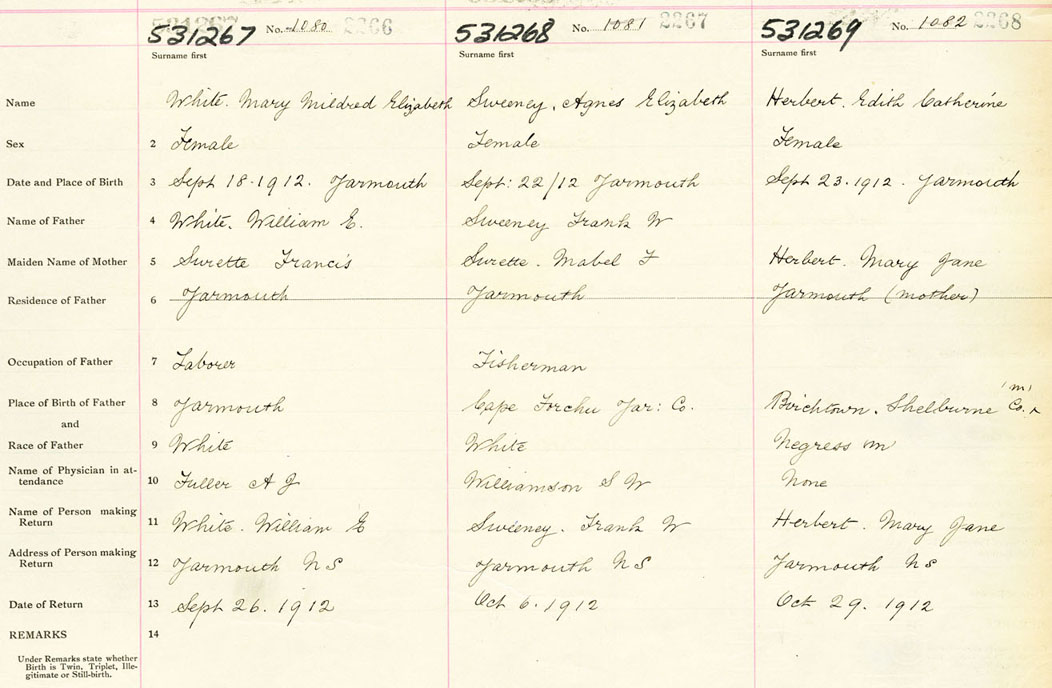 531267 No. 1080 2266 531268 No. 1081 2267 531269 No. 1082 2268
Surname first Surname first Surname first
Name White. Mary Mildred Elizabeth Sweeney, Agnes Elizabeth Herbert. Edith Catherine
Sex 2 Female Female Female
Date and Place of Birth 3 Sept 18-1912. Yarmouth Sept: 22/12 Yarmouth Sept 23.1912. Yarmouth
Name of Father 4 White. William E. Sweeney Frank W
Maiden Name of Mother 5 Surette Francis Surette. Mabel F Herbert. Mary Jane
Residence of Father 6 Yarmouth Yarmouth Yarmouth (mother)
Occupation of Father 7 Laborer Fisherman
(m)
Place of Birth of Father 8 Yarmouth Cape Forchu Yar: Co. Birchtown. Shelburne Co.
and
Race of Father 9 White White Negress m
Name of Physician in at-
tendance 10 Fuller A J Williamson S W None
Name of Person making
Return 11 White. William E Sweeney. Frank W Herbert. Mary Jane
Address of Person making
Return 12 Yarmouth N S Yarmouth N S Yarmouth N S
Date of Return 13 Sept 26. 1912 Oct 6. 1912 Oct 29. 1912
REMARKS 14
Under Remarks state whether
Birth is Twin, Triplet, Ille-
gitimate or Still-birth.